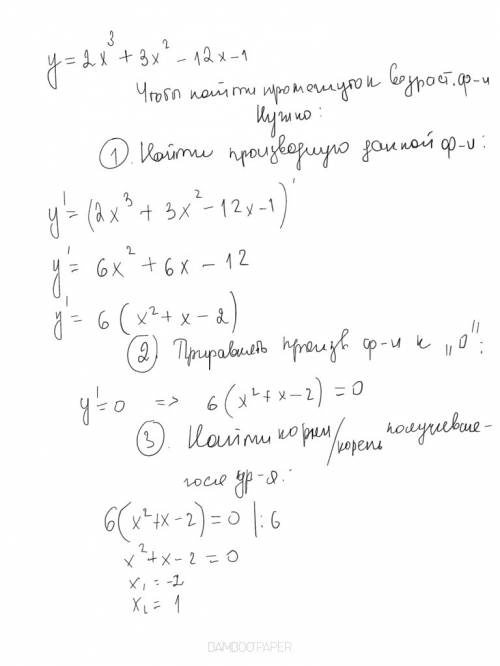 y = 2x³ + 3x² - 12x - 1
Чтобы найти промежуток возраст. ф-и
Нужно:
① Найти производную данной ф-и:
y' = (2x³ + 3x² - 12x - 1)'
y' = 6x² + 6x - 12
y' = 6(x² + x - 2)
② Приравнять произв. ф-и к „0":
y' = 0 => 6(x² + x - 2) = 0
③. Найти корни/корень получившe-
гося ур-я.
6(x² + x - 2) = 0 |:6
x² + x - 2 = 0
x₁ = -2
x₂ = 1
BAMBOOPAPER